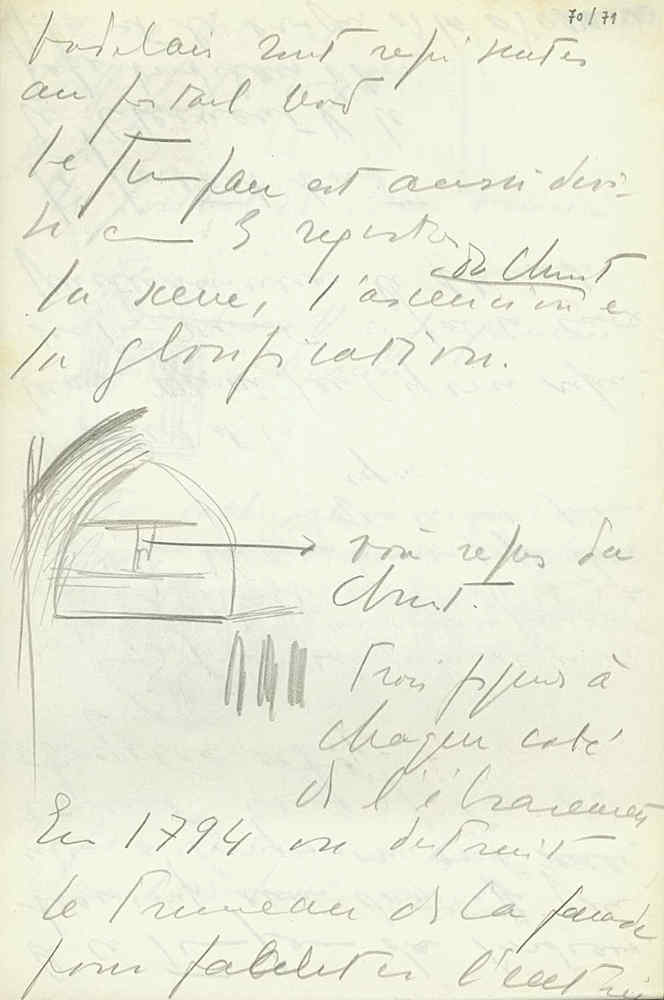 70/71
bordelais sont représentés
au portail nord
le Tympan est aussi divi-
sé en 3 registres
du Christ
la scene, l'ascencion et
la glorification.
voir repas du
Christ.
Trois figures à
chaque coté
de l'ébrasement
En 1794 on detruit
le trumeau de la facade
pour faciliter l'entrée